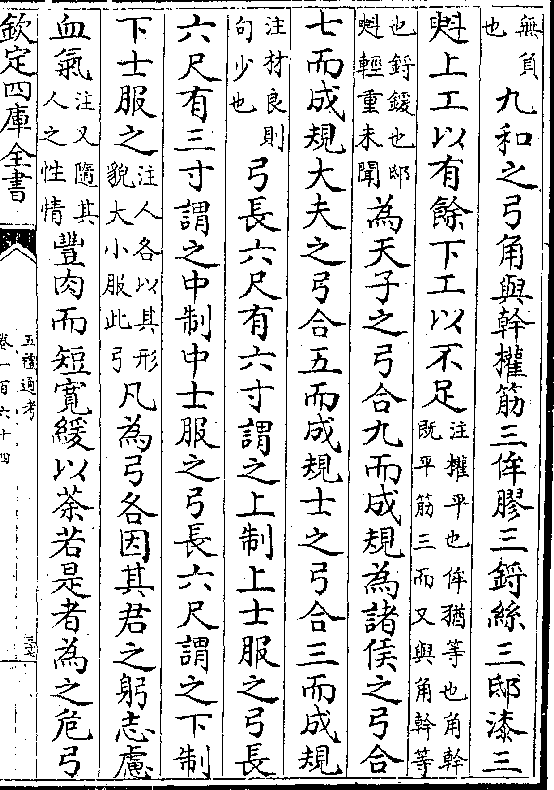 無負也九和之弓角與幹權筋三侔膠三鋝絲三邸漆三
斞上工以有餘下工以不足注權平也侔猶等也角幹既平筋三而又與角幹等
也鋝鍰也邸斞輕重未聞為天子之弓合九而成規為諸侯之弓合
七而成規大夫之弓合五而成規士之弓合三而成規
注材良則句少也弓長六尺有六寸謂之上制上士服之弓長
六尺有三寸謂之中制中士服之弓長六尺謂之下制
下士服之注人各以其形貌大小服此弓凡為弓各因其君之躬志慮
血氣注又隨其人之性情豐肉而短寛緩以荼若是者為之危弓
欽定四庫全書
五禮通考
卷一百六十四